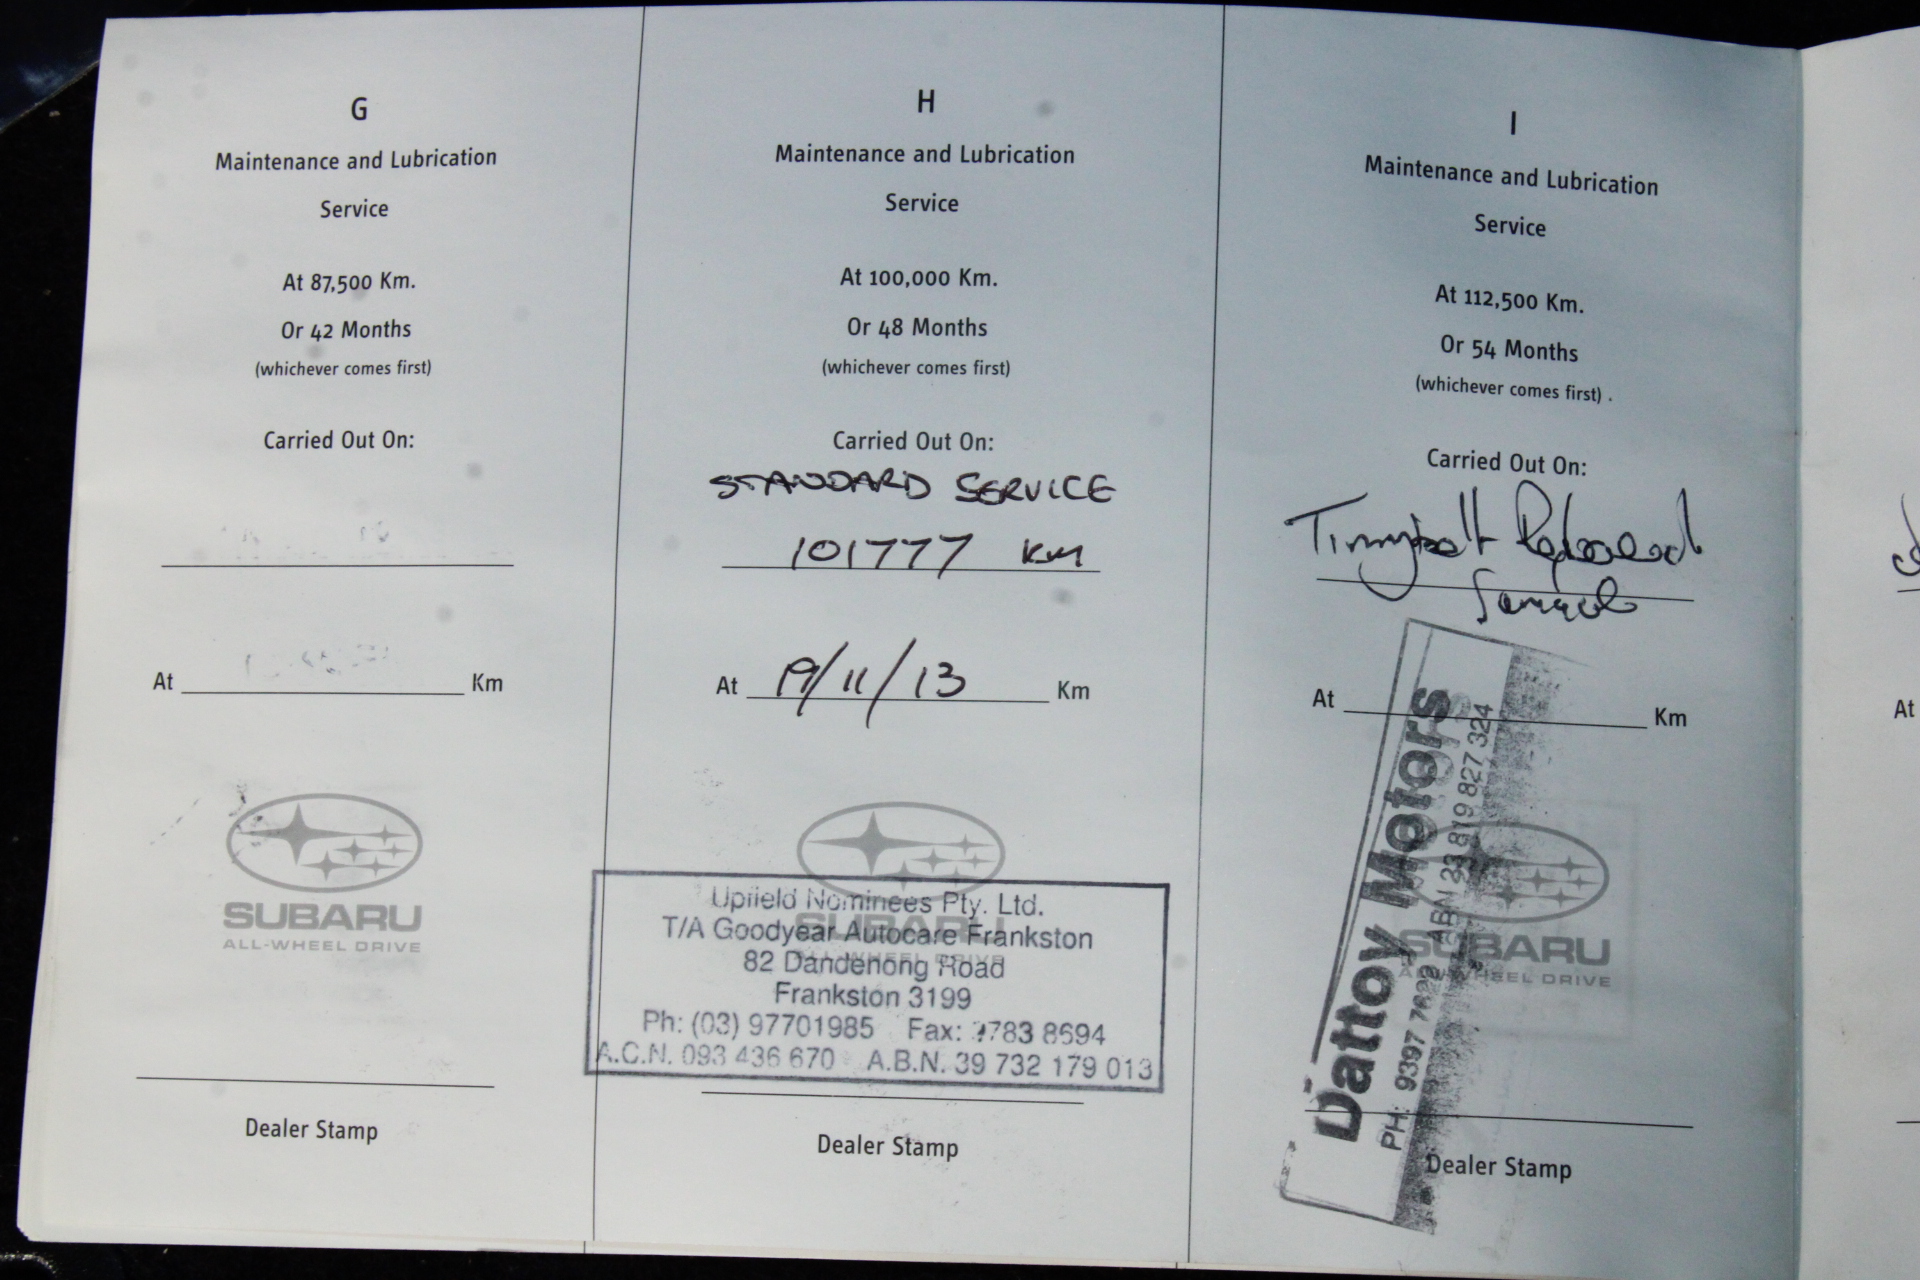 G
Maintenance and Lubrication
Service
At 87,500 Km.
Or 42 Months
(whichever comes first)
Carried Out On:
At Km
SUBARU
ALL-WHEEL DRIVE
Dealer Stamp
H
Maintenance and Lubrication
Service
At 100,000 Km.
Or 48 Months
(whichever comes first)
Carried Out On:
STANDARD SERVICE
101777 KM
At 19/11/13 Km
SUBARU
ALL-WHEEL DRIVE
Upfield Nominees Pty. Ltd.
T/A Goodyear Autocare Frankston
82 Dandenong Road
Frankston 3199
Ph: (03) 97701985 Fax: 9783 8694
A.C.N. 093 436 670 A.B.N. 39 732 179 013
Dealer Stamp
I
Maintenance and Lubrication
Service
At 112,500 Km.
Or 54 Months
(whichever comes first) .
Carried Out On:
Timingbelt Replaced
At Km
Dattoy Motors
PH: 9397 7622 ABN 33 819 827 324
SUBARU
ALL-WHEEL DRIVE
Dealer Stamp
At